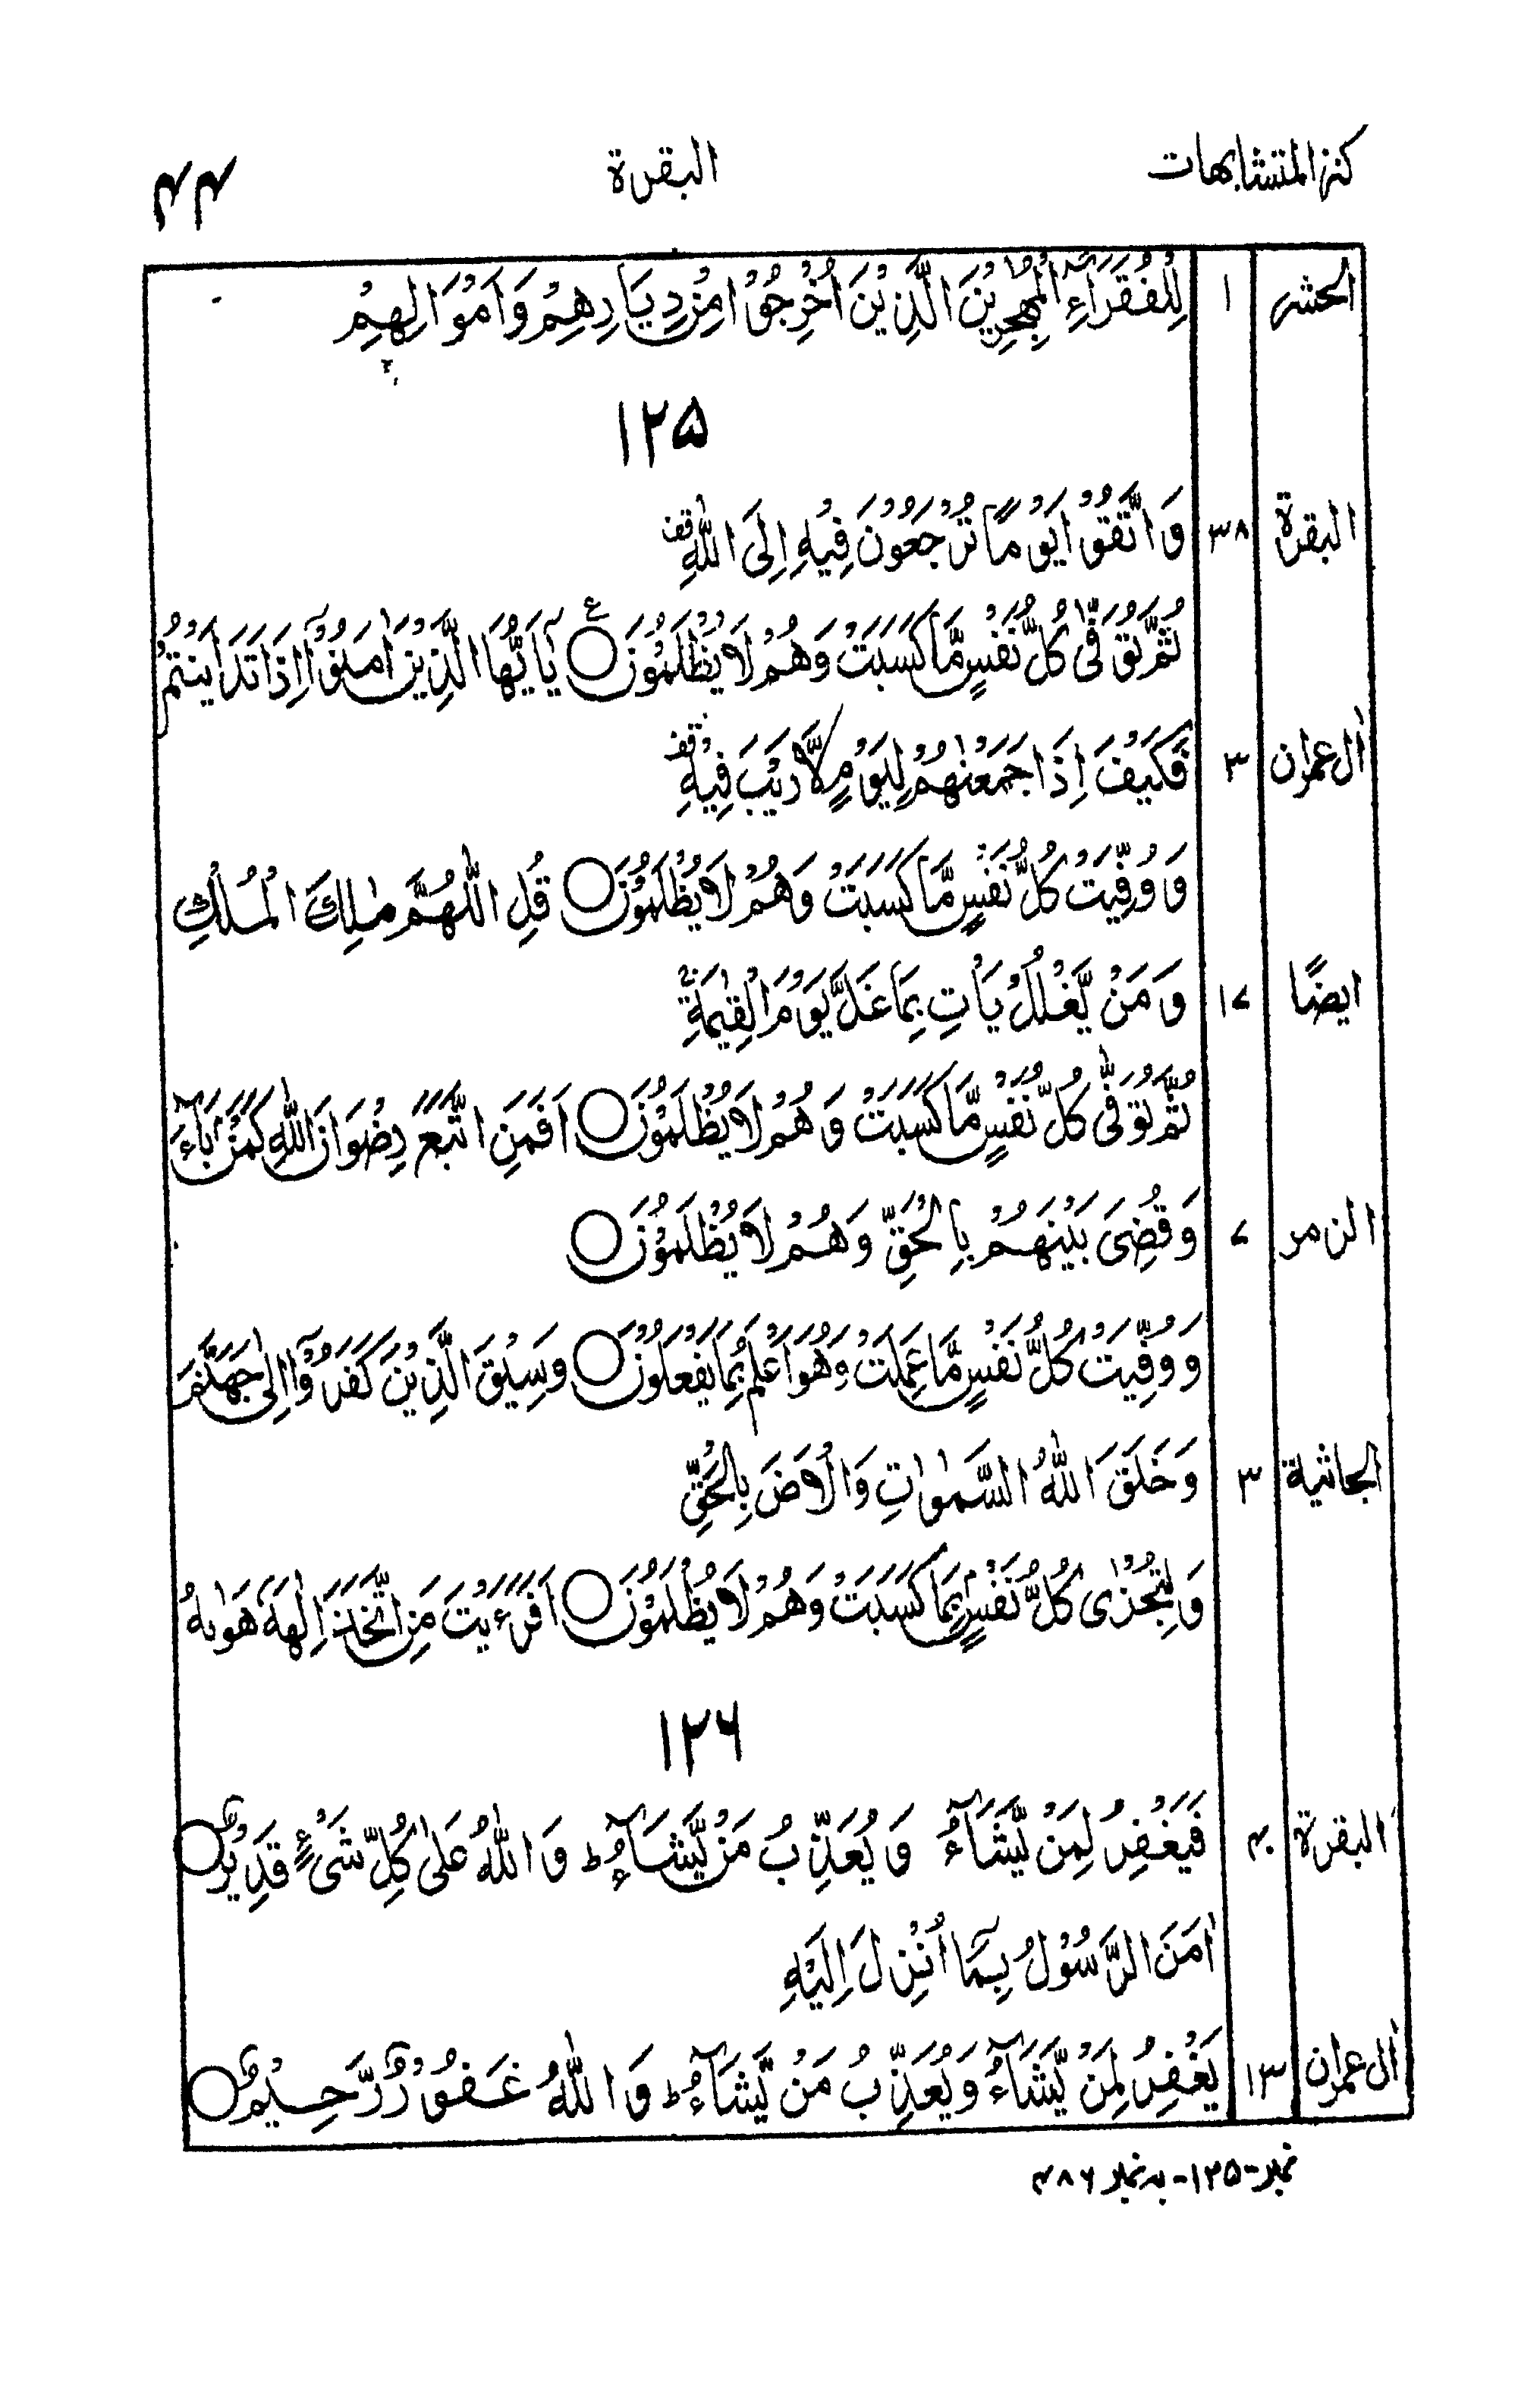 كنز المتشابهات البقرة ۴۴
الحشر ۱ لِلْفُقَرَآءِ الْمُهٰجِرِيْنَ الَّذِيْنَ اُخْرِجُوْا مِنْ دِيَارِهِمْ وَاَمْوَالِهِمْ
۱۲۵
البقرة ۳۸ وَاتَّقُوْا يَوْمًا تُرْجَعُوْنَ فِيْهِ اِلَى اللّٰهِ قف
ثُمَّ تُوَفّٰى كُلُّ نَفْسٍ مَّا كَسَبَتْ وَهُمْ لَا يُظْلَمُوْنَ ○ ع يٰٓاَيُّهَا الَّذِيْنَ اٰمَنُوْٓا اِذَا تَدَايَنْتُمْ
اٰل عمران ۳ فَكَيْفَ اِذَا جَمَعْنٰهُمْ لِيَوْمٍ لَّا رَيْبَ فِيْهِ قف
وَوُفِّيَتْ كُلُّ نَفْسٍ مَّا كَسَبَتْ وَهُمْ لَا يُظْلَمُوْنَ ○ قُلِ اللّٰهُمَّ مٰلِكَ الْمُلْكِ
ايضًا ۱۷ وَمَنْ يَّغْلُلْ يَاْتِ بِمَا غَلَّ يَوْمَ الْقِيٰمَةِ ج
ثُمَّ تُوَفّٰى كُلُّ نَفْسٍ مَّا كَسَبَتْ وَهُمْ لَا يُظْلَمُوْنَ ○ اَفَمَنِ اتَّبَعَ رِضْوَانَ اللّٰهِ كَمَنْۢ بَآءَ
الزمر ۷ وَقُضِىَ بَيْنَهُمْ بِالْحَقِّ وَهُمْ لَا يُظْلَمُوْنَ ○
وَوُفِّيَتْ كُلُّ نَفْسٍ مَّا عَمِلَتْ وَهُوَ اَعْلَمُ بِمَا يَفْعَلُوْنَ ○ وَسِيْقَ الَّذِيْنَ كَفَرُوْٓا اِلٰى جَهَنَّمَ
الجاثية ۳ وَخَلَقَ اللّٰهُ السَّمٰوٰتِ وَالْاَرْضَ بِالْحَقِّ
وَلِتُجْزٰى كُلُّ نَفْسٍۢ بِمَا كَسَبَتْ وَهُمْ لَا يُظْلَمُوْنَ ○ اَفَرَءَيْتَ مَنِ اتَّخَذَ اِلٰهَهٗ هَوٰىهُ
۱۲۶
البقرة ۴۰ فَيَغْفِرُ لِمَنْ يَّشَآءُ وَيُعَذِّبُ مَنْ يَّشَآءُ ط وَاللّٰهُ عَلٰى كُلِّ شَىْءٍ قَدِيْرٌ ○
اٰمَنَ الرَّسُوْلُ بِمَآ اُنْزِلَ اِلَيْهِ
اٰل عمران ۱۳ يَغْفِرُ لِمَنْ يَّشَآءُ وَيُعَذِّبُ مَنْ يَّشَآءُ ط وَاللّٰهُ غَفُوْرٌ رَّحِيْمٌ ○
نمبر-۱۲۵-بہ نمبر ۴۸۶